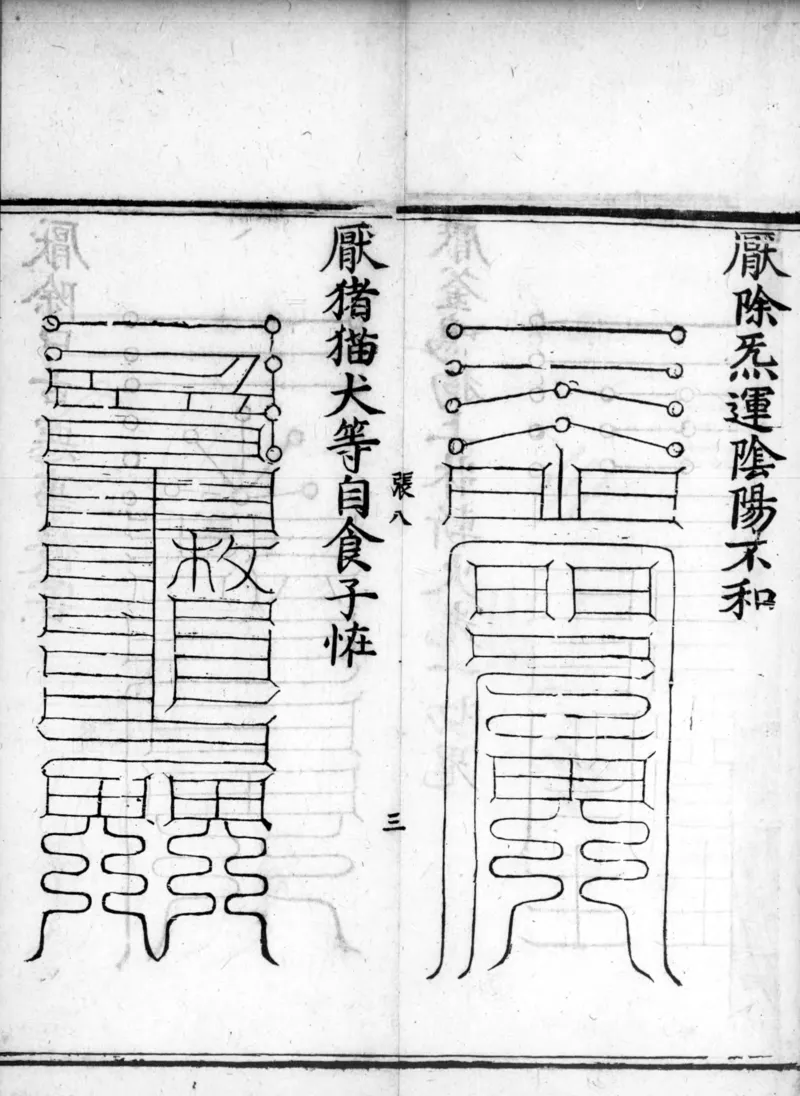 厭除炁運陰陽不和
張八
三
厭猪猫犬等自食子恠